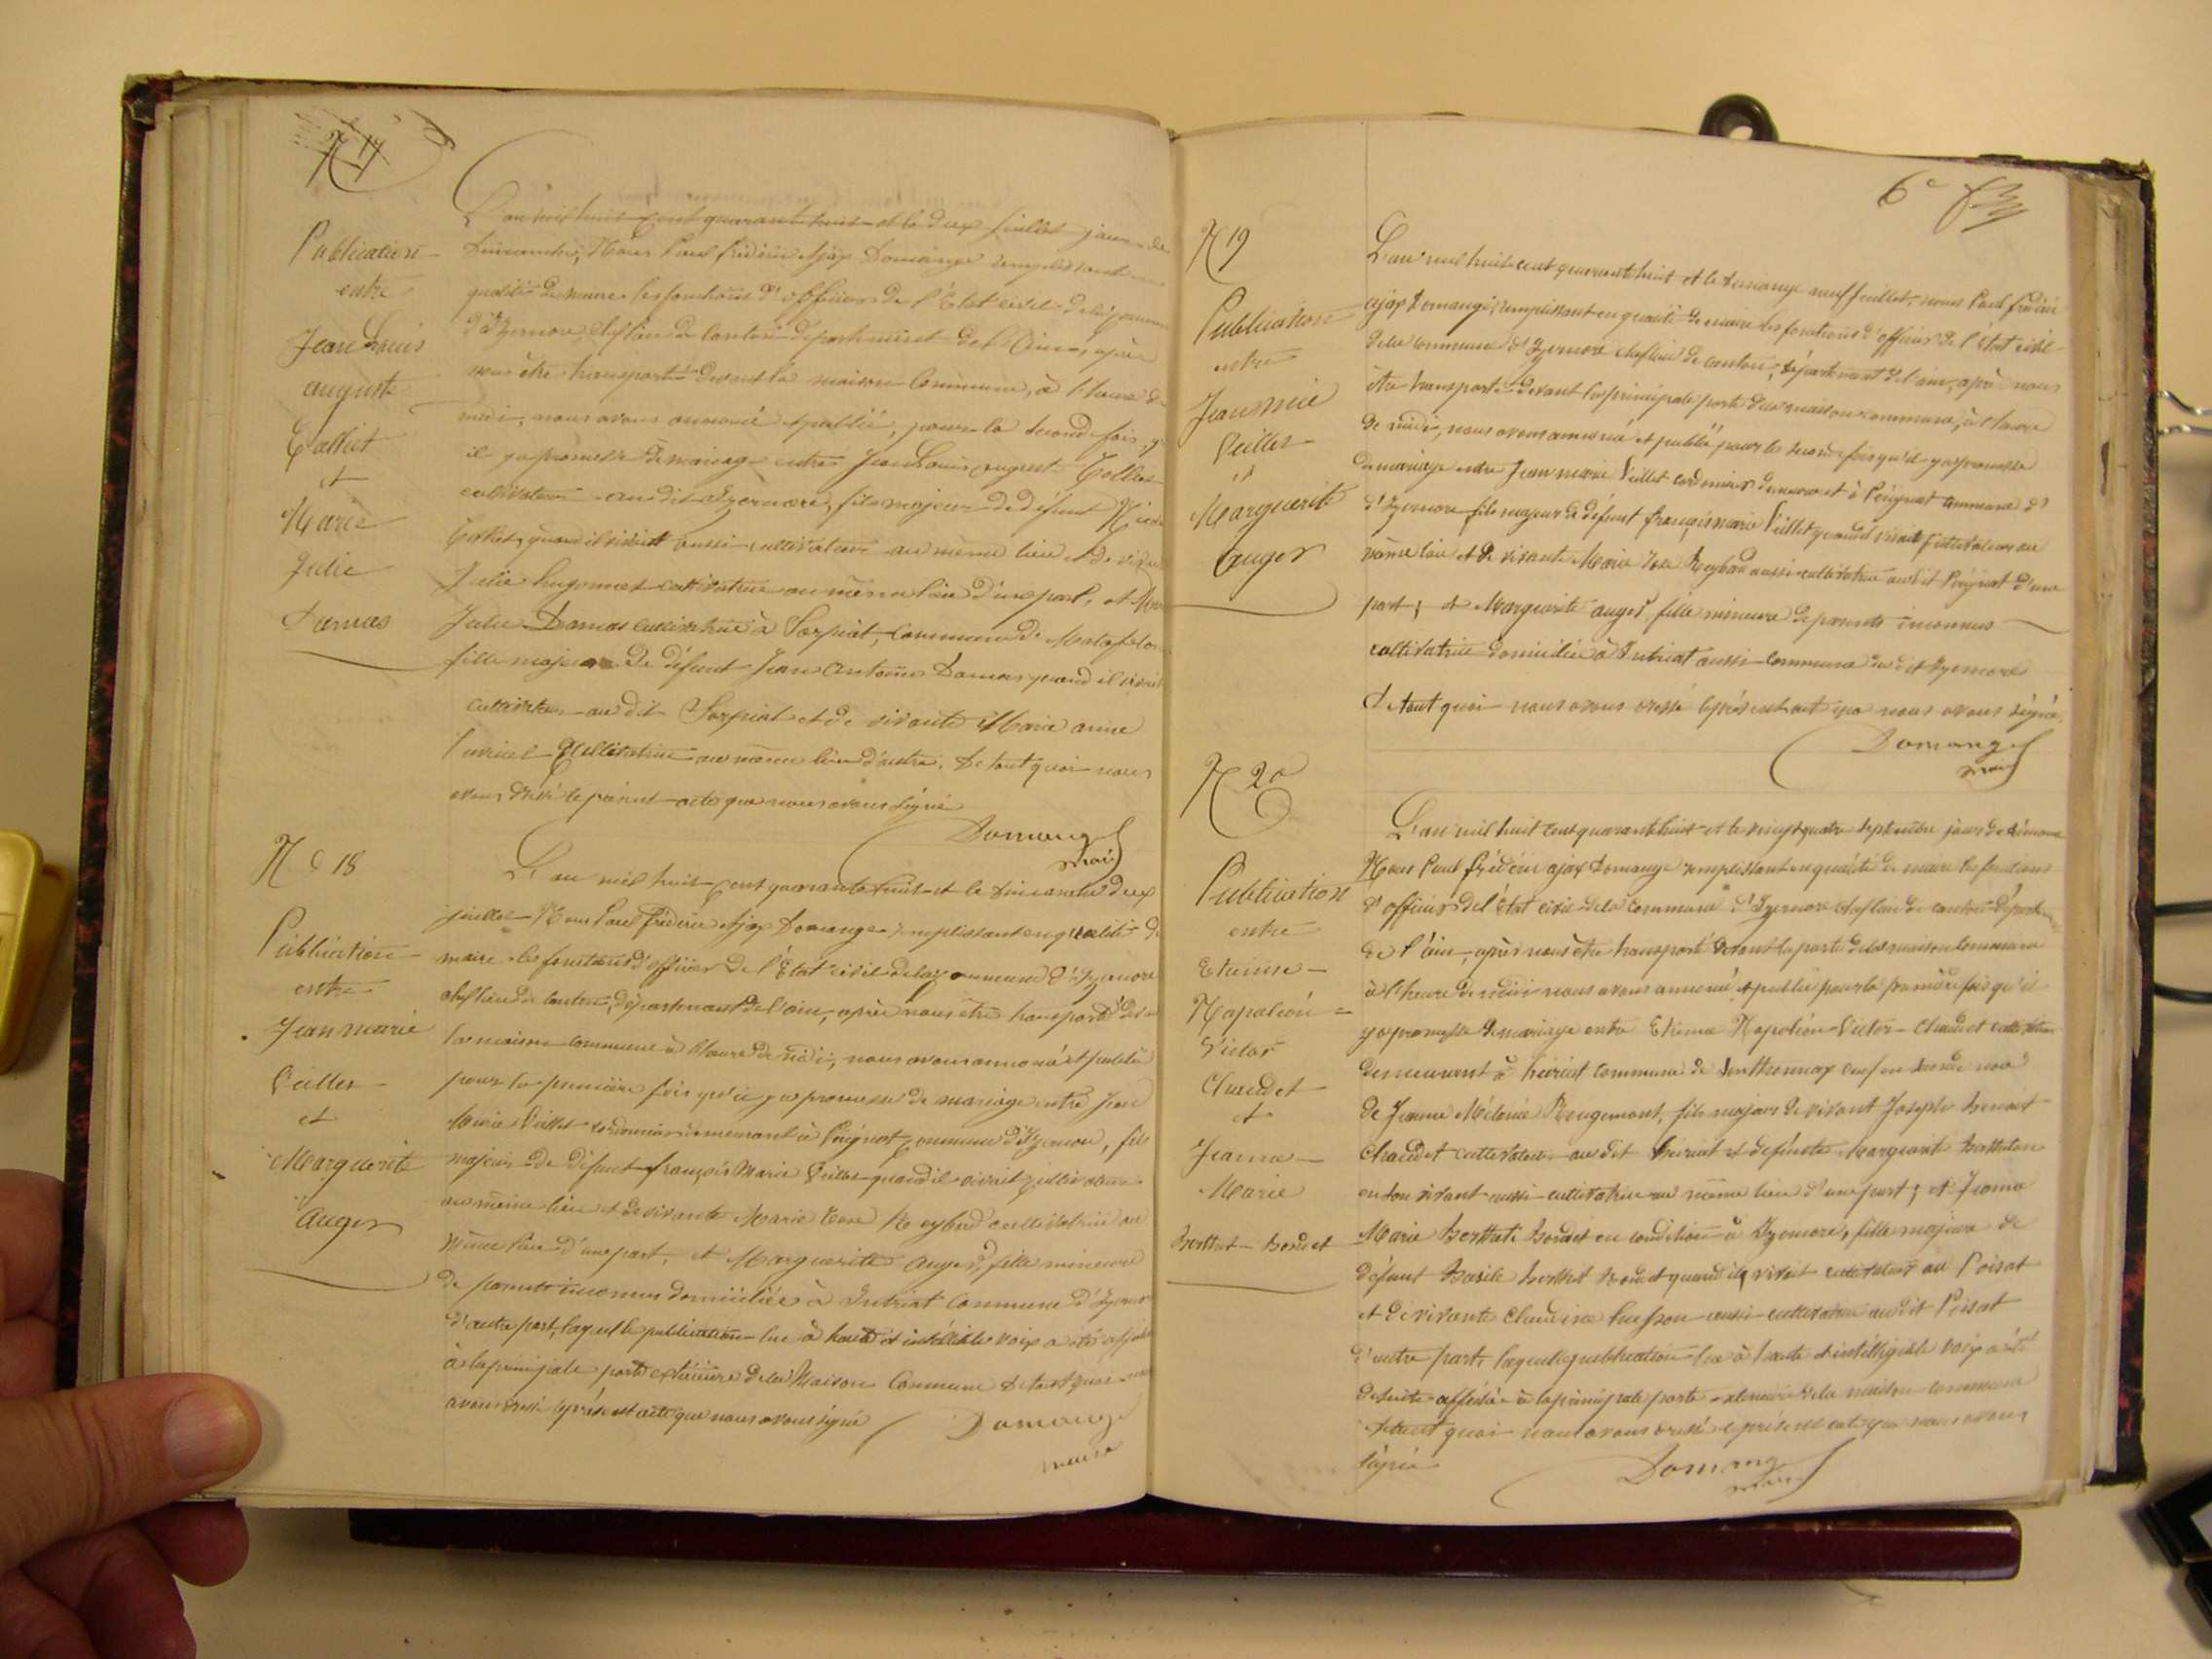 N 17
Publication
entre
Jean Louis
auguste
Collet
et
Marie
Julie
Damas
L'an mil huit cent quarante huit et le deux juillet jour de
Dimanche, Nous Paul frédéric Ajax Domange remplissant en
qualité de maire les fonctions d'officier de l'État civil de la commune
d'Izernore, chef lieu de Canton département de l'Ain, après
nous être transporté devant la maison Commune, à l'heure de
midi, nous avons annoncé et publié, pour la seconde fois, qu
il y a promesse de mariage entre Jean Louis auguste Collet
cultivateur au dit Izernore, fils majeur de défunt
Collet, quand il vivait aussi cultivateur au même lieu et de vivante
Julie hugonnet cultivatrice au même lieu d'une part, et Marie
Julie Damas cultivatrice à Sarpiat, Commune de
fille majeure de défunt Jean Antoine Damas quand il vivait
cultivateur au dit Sarpiat et de vivante Marie anne
cultivatrice au même lieu d'autre. De tout quoi nous
avons dressé le présent acte que nous avons signé
Domange
maire
N° 18
Publication
entre
Jean marie
Veillet
et
Marguerite
Auger
L'an mil huit cent quarante huit et le dimanche deux
juillet Nous Paul frédéric Ajax Domange remplissant en qualité de
maire les fonctions d'officier de l'État civil de la commune d'Izernore
chef lieu de Canton, département de l'ain, après nous être transporté devant
la maison commune à l'heure de midi, nous avons annoncé et publié
pour la première fois qu'il y a promesse de mariage entre Jean
Marie Veillet cordonnier demeurant à Peignat Commune d'Izernore, fils
majeur de défunt françois Marie Veillet quand il vivait cultivateur
au même lieu et de vivante Marie Rose Reybard cultivatrice au
même lieu d'une part, et Marguerite Auger fille mineure
de parents inconnus domiciliée à Intriat Commune d'Izernore
d'autre part, laquelle publication lue à haute et intelligible voix a été affichée
à la principale porte extérieure de la Maison Commune de tout quoi nous
avons dressé le présent acte que nous avons signé
Domange
maire
6e
N 19
Publication
entre
Jean marie
Veillet
et
Marguerite
Auger
L'an mil huit cent quarante huit et le dimanche neuf juillet, nous Paul frédéric
ajax Domange, remplissant en qualité de maire les fonctions d'officier de l'état civil
de la commune d'Izernore chef lieu de canton, département de l'ain, après nous
être transporté devant la principale porte de la maison commune, à l'heure
de midi, nous avons annoncé et publié pour la seconde fois qu'il y a promesse
de mariage entre Jean marie Veillet cordonnier demeurant à Peignat commune d'
d'Izernore fils majeur de défunt françois marie Veillet quand vivait cultivateur au
même lieu et de vivante Marie Rose Reybard aussi cultivatrice audit Peignat d'une
part; et Marguerite auger fille mineure de parents inconnus
cultivatrice domiciliée à Intriat aussi commune du dit Izernore
De tout quoi nous avons dressé le présent acte que nous avons signé.
Domange
maire
N 20
Publication
entre
Etienne
Napoléon
Victor
Chaudet
et
Jeanne
Marie
Berthet-Bondet
L'an mil huit cent quarante huit et le vingt quatre septembre jour de dimanche
Nous Paul frédéric ajax Domange remplissant en qualité de maire les fonctions
d'officier de l'État civil de la commune d'Izernore chef lieu de canton département
de l'ain, après nous être transporté devant la porte de la maison commune
à l'heure de midi nous avons annoncé et publié pour la première fois qu'il
y a promesse de mariage entre Etienne Napoléon Victor Chaudet cultivateur
demeurant à heiriat commune de Sonthonnax veuf en seconde noce
de Jeanne Mélanie Rougemont, fils majeur de vivant Joseph
Chaudet cultivateur au dit heiriat et défunte Marguerite
en son vivant aussi cultivatrice au même lieu d'une part; et Jeanne
Marie Berthet Bondet en condition à Izernore, fille majeure de
défunt Basile Berthet Bondet quand il vivait cultivateur au Poisat
et de vivante Claudine husson aussi cultivatrice au dit Poisat
d'autre part, laquelle publication lue à haute et intelligible voix a été
de suite affichée à la principale porte extérieure de la maison commune
de tout quoi nous avons dressé le présent acte que nous avons
signé
Domange
maire